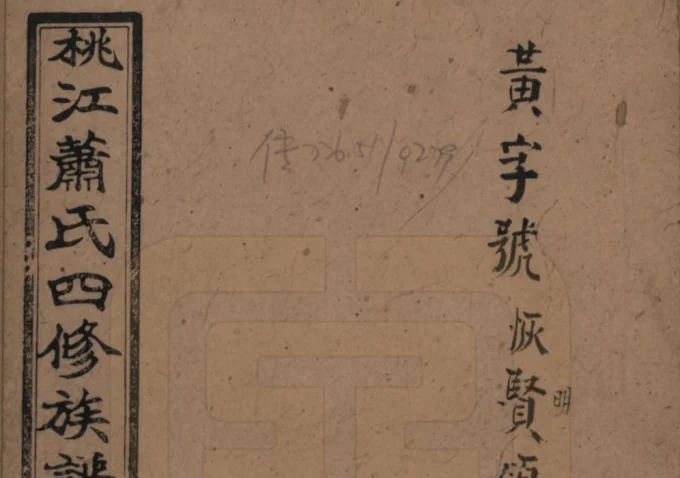 黃字號 恢賢
明
傳 726.51/9279
桃江蕭氏四修族譜